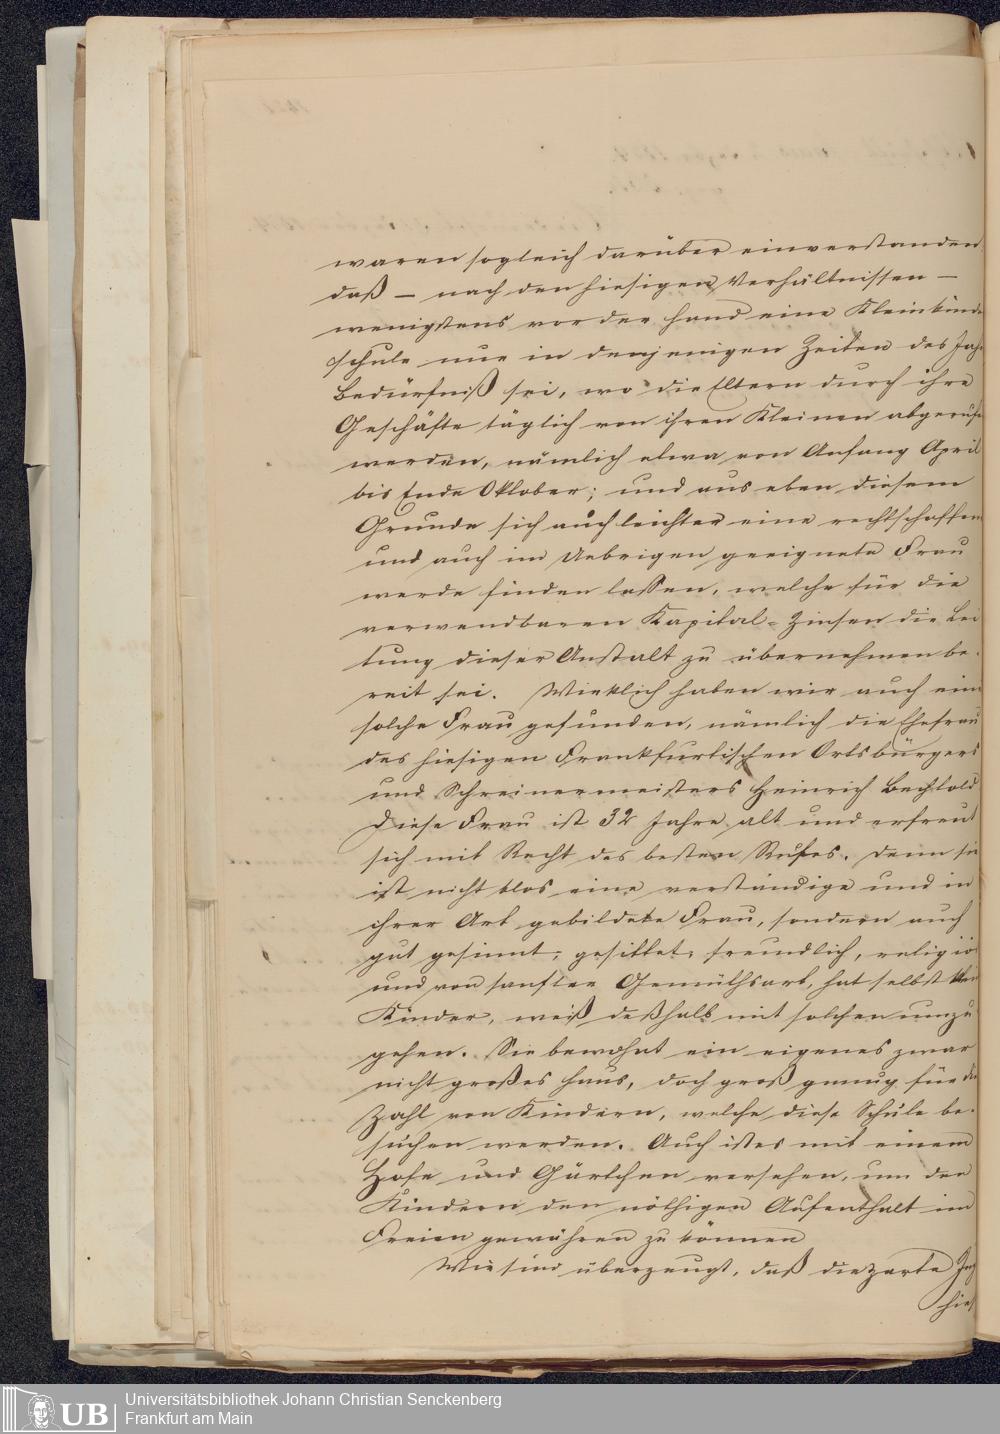 waren sogleich darüber einverstanden
daß – nach den hiesigen Verhältnissen –
wenigstens vor der Hand eine Kleinkinde
schule nur in denjenigen Zeiten des Jah
Bedürfniß sei, wo die Eltern durch ihre
Geschäfte täglich von ihren Kleinen abgerufe
werden, nämlich etwa von Anfang April
bis Ende Oktober; und aus eben diesem
Grunde sich auch leichter eine rechtschaffen
und auch im Uebrigen geeignete Frau
werde finden lassen, welche für die
verwendbaren Kapital-Zinsen die Lei
tung dieser Anstalt zu übernehmen be-
reit sei. Wirklich haben wir auch eine
solche Frau gefunden, nämlich die Ehefrau
des hiesigen Frankfurtischen Ortsbürgers
und Schreinermeisters Heinrich Bechtold
Diese Frau ist 32 Jahre alt und erfreut
sich mit Recht des besten Rufes. Denn sie
ist nicht blos eine verständige und in
ihrer Art gebildete Frau, sondern auch
gut gesinnt, gesittet, freundlich, religiö
und von sanfter Gemüthsart, hat selbst
Kinder, weiß deßhalb mit solchen umzu
gehen. Sie bewohnt ein eigenes zwar
nicht großes Haus, doch groß genug für die
Zahl von Kindern, welche diese Schule be-
suchen werden. Auch ist es mit einem
Hofe und Gärtchen versehen, um den
Kindern den nöthigen Aufenthalt im
Freien gewähren zu können
Wir sind überzeugt, daß die zarte Jug
hies
Universitätsbibliothek Johann Christian Senckenberg
Frankfurt am Main
UB